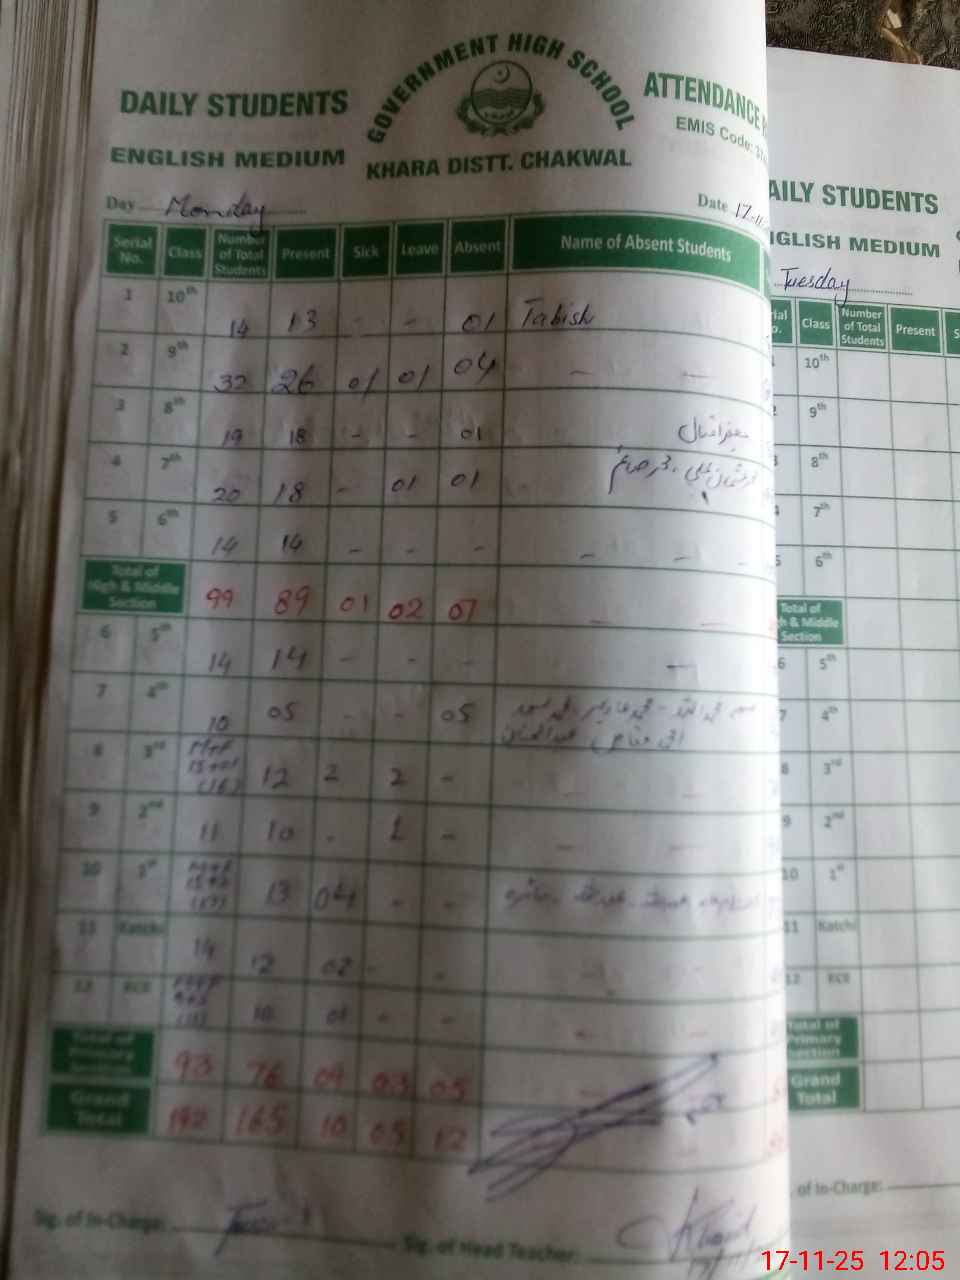 GOVERNMENT HIGH SCHOOL
DAILY STUDENTS ATTENDANCE
EMIS Code:
ENGLISH MEDIUM KHARA DISTT. CHAKWAL
Day Monday Date 17-11-
Serial No. Class Number of Total Students Present Sick Leave Absent Name of Absent Students
1 10th 14 13 - - 01 Tabish
2 9th 32 26 01 01 04 - -
3 8th 19 18 - - 01
4 7th 20 18 - 01 01
5 6th 14 14 - - - - -
Total of High & Middle Section 99 89 01 02 07 - -
6 5th 14 14 - - - -
7 4th 10 05 - - 05
8 3rd 15+01 (16) 12 2 2 - - -
9 2nd 11 10 - 1 - - -
10 1st 13 04 - -
11 Katchi 14 12 02 - - - -
12 ECE 10 01 - - - -
Total of Primary Section 93 76 09 03 05
Grand Total 192 165 10 05 12
Sig. of In-Charge:
Sig. of Head Teacher:
DAILY STUDENTS
ENGLISH MEDIUM
Tuesday
Class Number of Total Students Present
10th
9th
8th
7th
6th
Total of & Middle Section
6 5th
7 4th
8 3rd
9 2nd
10 1st
11 Katchi
12 ECE
Total of Primary Section
Grand Total
of In-Charge:
17-11-25 12:05